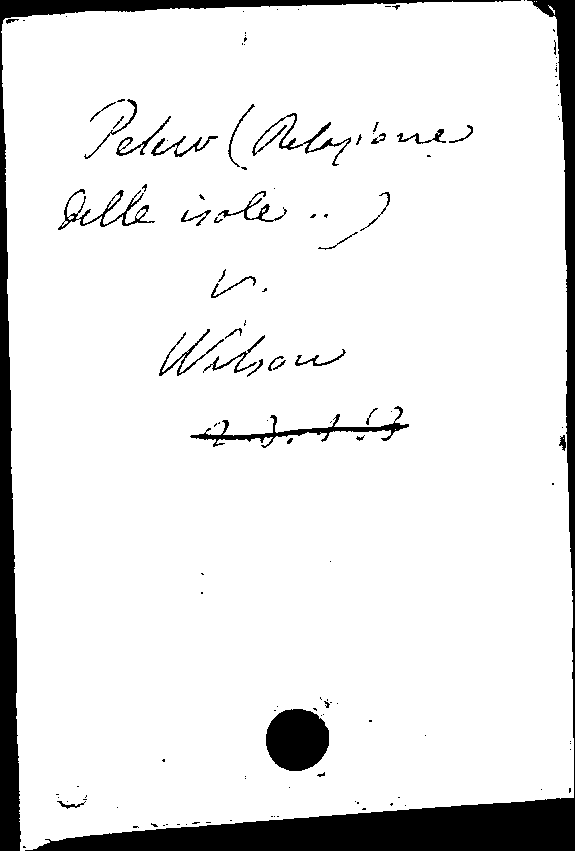 Pelew (Relazione
delle isole ..)
v.
Wilson